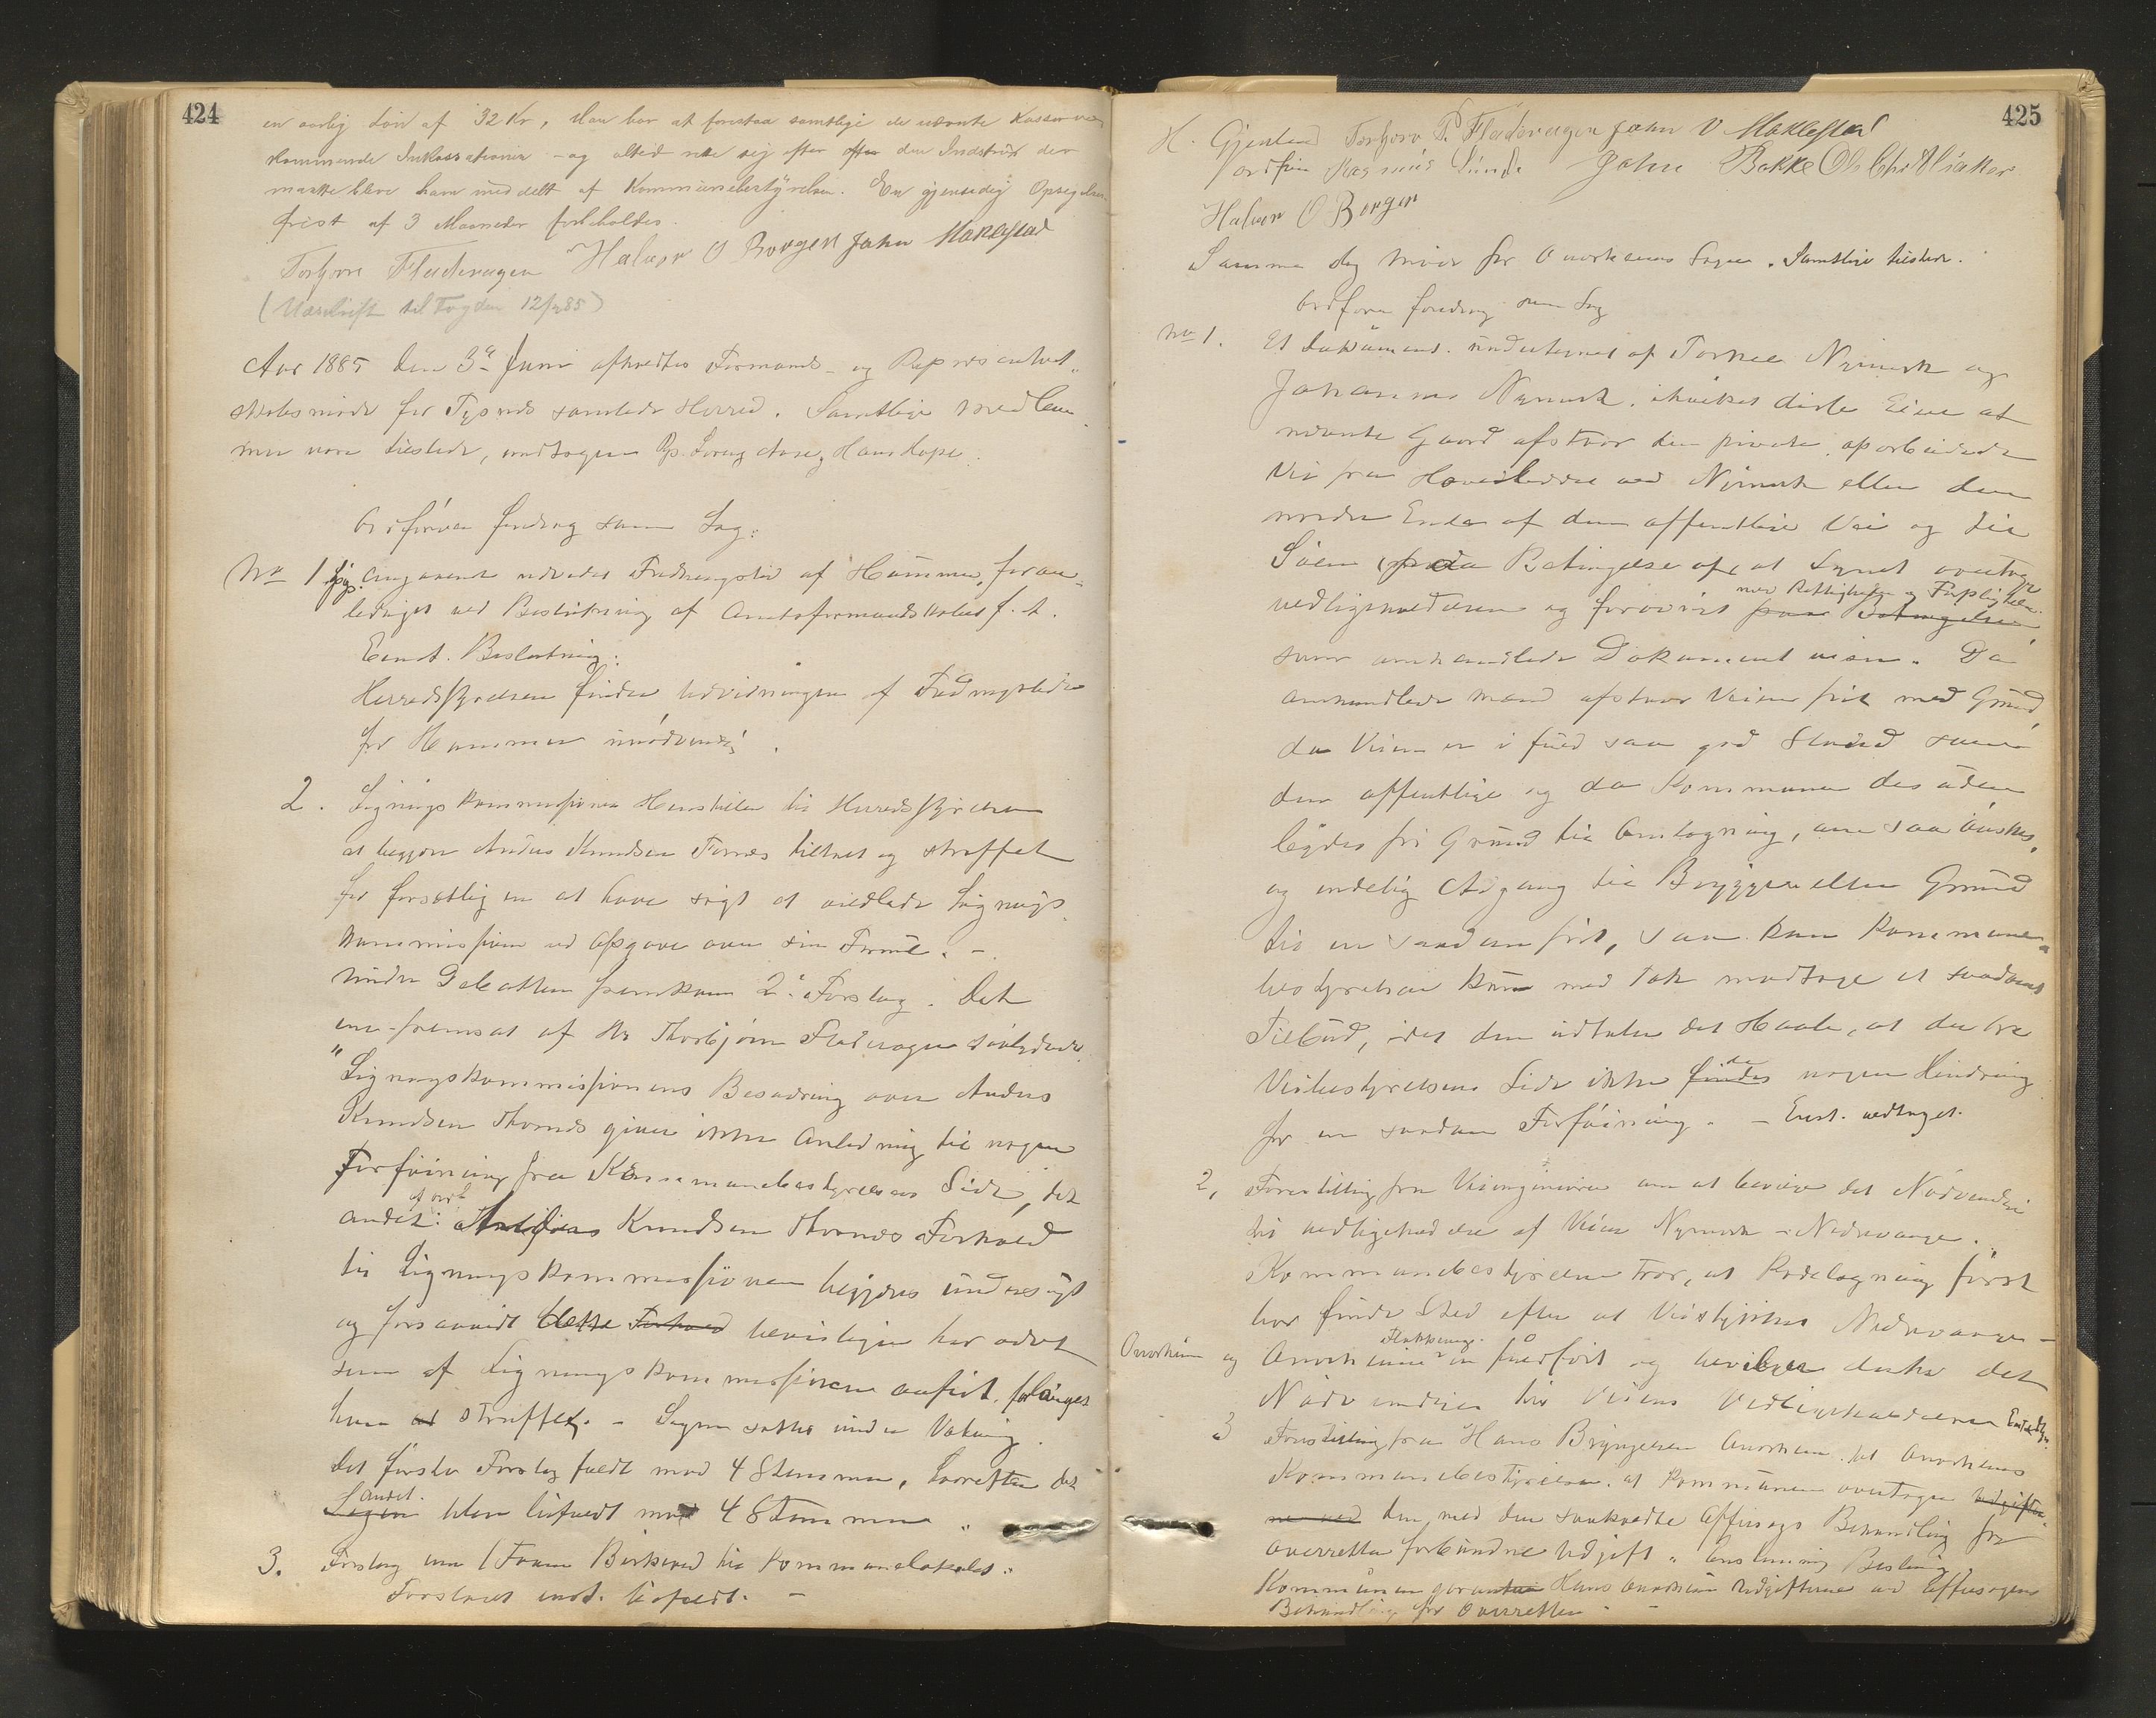 424
en aarlig Løn af 32 Kr, Han har at forestaa samtlige de nævnte Kasser ved
kommende Inkassationer - og altid rette sig efter den Instrux der
maatte blive ham meddelt af Kommunebestyrelsen. En gjensidig Opsigelses
frist af 3 Maaneder forbeholdes.
Torbjørn Fladevagen Halvor O Borgen John Maklestad
(Udskrift til Fogden 12/7 85)
Aar 1885 den 3die Juni afholdtes Formands- og Repræsentant-
skabsmøde for Tysnæs samlede Herred. Samtlige Medlem
mer vare tilstede, undtagen Rp. Hans Hope.
Ordføreren foredrog som Sag:
No 1 angaaende udvidet Fredningstid af Hummer, foran-
lediget ved Beslutning af Amtsformandskabet f. A.
Eenst. Beslutning:
Herredsstyrelsen finder Udvidningen af Fredningstiden
for Hummer unødvendig.
2. Ligningskommissionen Henstiller til Herredsstyrelsen
at begjære Anders Knudsen Tornæs tiltalt og straffet
for forsætligen at have søgt at vildlede Lignings-
kommissionen ved Opgave over sin Formue. -
Under Debatten fremkom 2de Forslag. Det
ene fremsat af Hr Thorbjørn Fladevagen saalydende
"Ligningskommissionens Besværing over Anders
Knudsen Thornæs giver ikke Anledning til nogen
Forføining fra Kommunebestyrelsens Side, det
andet: Anders Knudsen Thornæs Forhold
til Ligningskommissionen begjæres undersøgt
og forsaavidt dette Forhold bevisligen har været
som af Ligningskommissionen anført forlanges
ham at straffet. - Sagen sattes under Votering.
Det første Forslag faldt mod 4 Stemmer, hvorefter det
andet.
Sagen blev bifaldt mod 4 Stemmer "
3. Forslag om 1 Favn Birkeved til Kommunelokalet.
Forslaget enst. bifaldt. -
425
H. Gjerland Torbjørn P. Fladevagen John O Maklestad
Ordfører Rasmus Lunde John Bakke Ole Chr
Halvor O Borgen
Samme dag Møde for Onarheims Sogn. Samtlige tilstede.
Ordføren foredrog som Sag
No 1. Et Dokument undertegnet af Torkel Nymark og
Johannes Nymark, ihvilket disse Eiere af
nævnte Gaard afstaar den private oparbeidede
Vei fra Hovedleddet ved Nymark eller den
nordre Ende af den offentlige Vei og til
Søen paa Betingelse af, at Sognet overtager
med Rettigheder og Forpligtelser
vedligeholdelsen og forøvrigt paa Betingelsen
som omhandlede Dokument viser. Da
omhandlede Mænd afstaar Veien frit med Grund,
da Veien er i fuld saa god Stand som
den offentlige og da Kommunen desuden
bydes fri Grund til Omlægning, om saa ønskes,
og endelig Adgang til Bryggen eller Grund
til en saadan frit, saa kan Kommune-
bestyrelsen kun med Tak modtage et saadant
Tilbud, idet den udtaler det Haab, at der fra
Veibestyrelsens Side ikke findes nogen Hindring
for en saadan Forføining. - Enst. vedtaget.
2, Forestilling fra Veiingeniøren om at bevilge det Nødvendige
til vedligeholdelse af Veien Nymark - Nedrevaage.
Kommunebestyrelsen tror, at Rodelægning først
bør finde Sted efter at Veistykket Nedrevaage -
Flakkevaag.
Onarheim og Onarheim er fuldført og bevilger derfor det
Nødvendige til Veiens Vedligeholdelse Enst.
3 Forestilling fra Hans Brynjelsen Onarheim til Onarheims
Kommunebestyrelse, at Kommunen overtager Udgifter
ne ved den, med den paaklagede Behandling for
Overretten forbundne Udgift. Enstemmig Beslutning
Kommunen garanterer Hans Onarheim Udgifterne ved
Behandling for Overretten. -